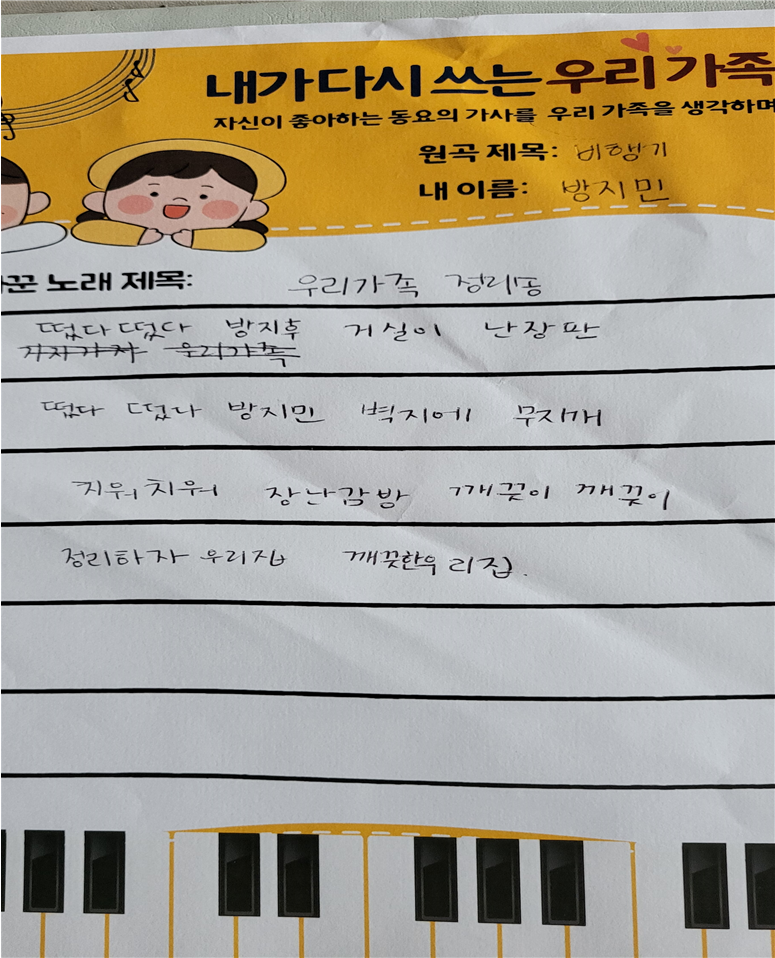 내가 다시 쓰는 우리 가족
자신이 좋아하는 동요의 가사를 우리 가족을 생각하며
원곡 제목: 비행기
내 이름: 방지민
꾼 노래 제목: 우리가족 정리송
떴다 떴다 방지후 거실이 난장판
가자가자 우리가족
떴다 떴다 방지민 벽지에 무지개
치워치워 장난감방 깨끗이 깨끗이
정리하자 우리집 깨끗한우리집.